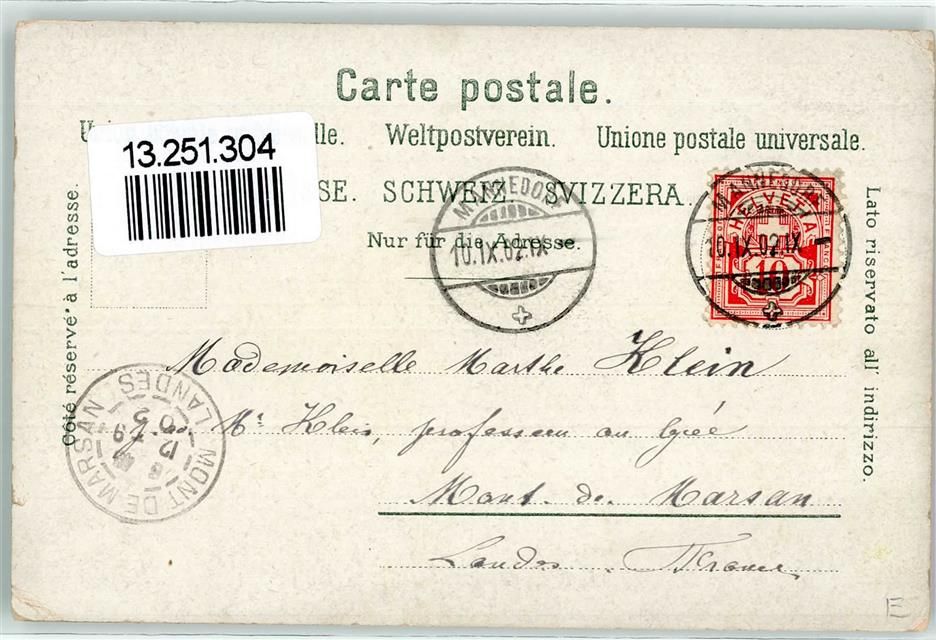 Carte postale.
13.251.304
lle. Weltpostverein. Unione postale universale.
SE. SCHWEIZ. SVIZZERA.
Nur für die Adresse.
Côté réservé à l'adresse.
Lato riservato all' indirizzo.
MÆNNEDORF
10.IX.02.IX
MÆNNEDORF
10.IX.02.IX
HELVETIA
10
Mademoiselle Marthe Klein
Mr Klein, professeur au lycée
Mont-de-Marsan
Landes. France
MONT DE MARSAN
LANDES
E